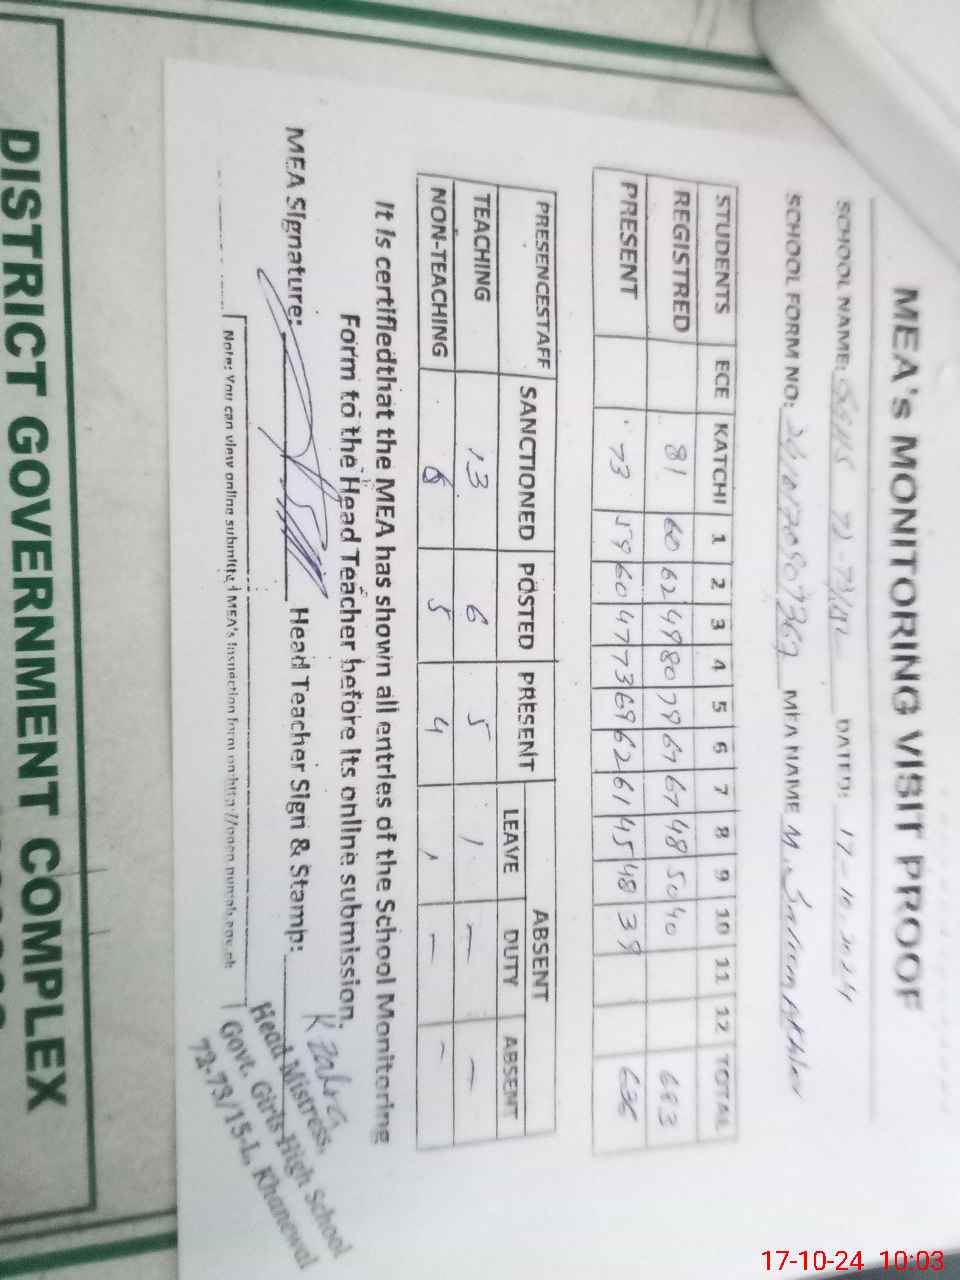 MEA's MONITORING VISIT PROOF
SCHOOL NAME: GGHS 72-73/15L DATED: 17-10-2024
SCHOOL FORM NO: MEA NAME M. Saleem Akhter
STUDENTS ECE KATCHI 1 2 3 4 5 6 7 8 9 10 11 12 TOTAL
REGISTRED 81 60 62 49 80 79 67 67 48 50 40
PRESENT 73 59 60 47 73 69 62 61 45 48 39 636
PRESENCESTAFF SANCTIONED POSTED PRESENT ABSENT
LEAVE DUTY ABSENT
TEACHING 13 6 5 1 — —
NON-TEACHING 6 5 4 — —
It is certifiedthat the MEA has shown all entries of the School Monitoring
Form to the Head Teacher before its online submission.
MEA Signature: Head Teacher Sign & Stamp: K Zahra
Head Mistress,
Govt. Girls High School
72-73/15-L, Khanewal
Note: You can view online submitted MEA's Inspection form on
DISTRICT GOVERNMENT COMPLEX
17-10-24 10:03